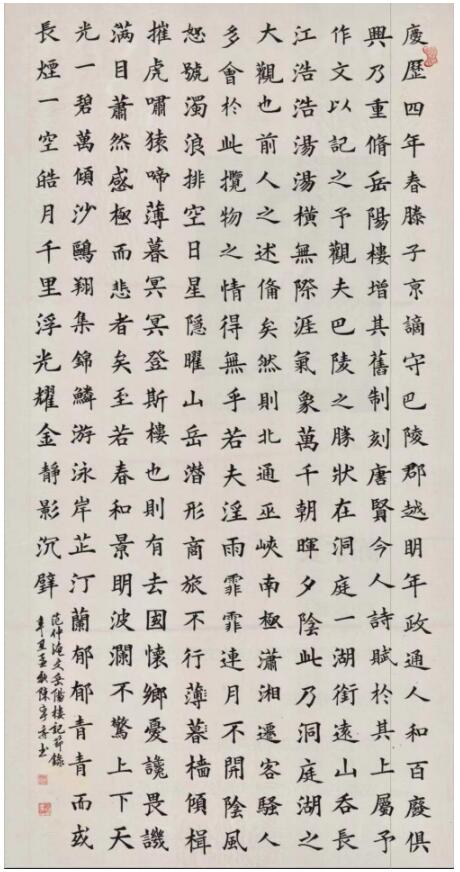 慶歷四年春滕子京謫守巴陵郡越明年政通人和百廢俱
興乃重脩岳陽樓增其舊制刻唐賢今人詩賦於其上屬予
作文以記之予觀夫巴陵之勝狀在洞庭一湖銜遠山吞長
江浩浩湯湯橫無際涯氣象萬千朝暉夕陰此乃洞庭湖之
大觀也前人之述備矣然則北通巫峽南極瀟湘遷客騷人
多會於此攬物之情得無乎若夫淫雨霏霏連月不開陰風
怒號濁浪排空日星隱曜山岳潛形商旅不行薄暮檣傾楫
摧虎嘯猿啼薄暮冥冥登斯樓也則有去國懷鄉憂讒畏譏
滿目蕭然感極而悲者矣至若春和景明波瀾不驚上下天
光一碧萬傾沙鷗翔集錦鱗游泳岸芷汀蘭郁郁青青而或
長煙一空皓月千里浮光耀金靜影沉璧
范仲淹文岳陽樓記節錄
辛丑孟秋陳書